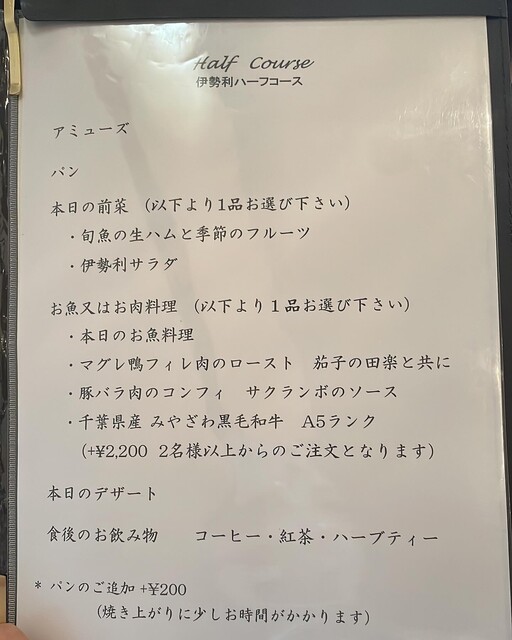 Half Course
伊勢利ハーフコース
アミューズ
パン
本日の前菜 （以下より1品お選び下さい）
・旬魚の生ハムと季節のフルーツ
・伊勢利サラダ
お魚又はお肉料理 （以下より１品お選び下さい）
・本日のお魚料理
・マグレ鴨フィレ肉のロースト　茄子の田楽と共に
・豚バラ肉のコンフィ　サクランボのソース
・千葉県産 みやざわ黒毛和牛　A5ランク
(+¥2,200 2名様以上からのご注文となります)
本日のデザート
食後のお飲み物　　コーヒー・紅茶・ハーブティー
* パンのご追加 +¥200
(焼き上がりに少しお時間がかかります)